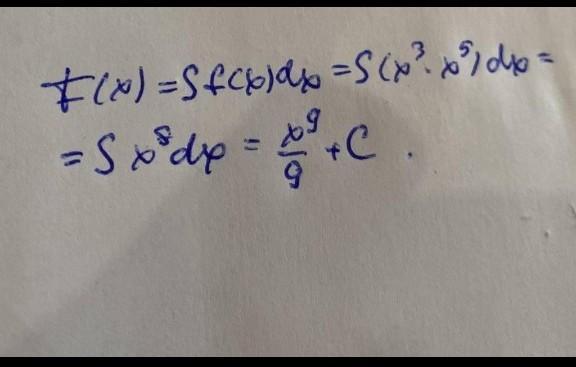 F(x) = ∫ f(x)dx = ∫(x³ · x⁵)dx =
= ∫ x⁸dx = x⁹/9 + C .